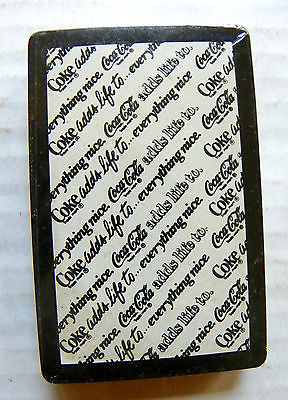 Coke adds life to...
everything nice. Coca-Cola adds life to.
Coke adds life to...everything nice.
everything nice. Coca-Cola adds life to.
Coke adds life to...everything nice. Coca-Cola
everything nice. Coca-Cola adds life to. Coke
Coke adds life to...everything nice. Coca-Cola
everything nice. Coca-Cola adds life to. Coke
life to...everything nice. Coca-Cola
adds life to.